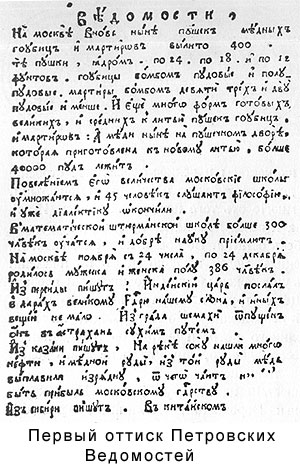 Вѣдомости
На москвѣ вновь нынѣ пушекъ мѣдныхъ
гоубицъ и мартировъ вылито 400.
тѣ пушки, ядромъ. по 24. по 18. и по 12
фунтовъ. гоубицы бомбомъ пудовые и полу
пудовые. мартиры бомбомъ девяти трехъ и дву
пудовые и менше. И еще много формъ готовыхъ
великихъ, и среднихъ к литью пушекъ гоубицъ.
и мартировъ: А мѣди нынѣ на пушечном дворѣ,
которая приготовлена к новому литью, болше
40000 пудъ лежитъ.
Повелѣнiемъ егѡ величества московскiе школы
оумножаются, и 45 человѣкъ слушаютъ фiлософiю,
и уже дiалектiку ѡкончили.
В математiческой штюрманской школѣ болше 300
члвѣкъ оучатся, и добрѣ науку прiемлютъ.
На москвѣ ноября с 24 числа, по 24 декабря
родилось мужеска и женска полу 386 члвѣкъ.
Из персиды пишутъ: Индѣйскiй царь послалъ
в дарахъ великому Гдрю нашему слона, и иныхъ
вещей не мало. Из града шемахи ѿпущенъ
онъ в астрахань сухимъ путемъ.
Из казани пишутъ, На рѣкѣ соку нашли много
нефти, и мѣдной руды, из той руды мѣдь
выплавили изрядну, ѿ чегѡ чаютъ не малую
быть прибыль московскому гдрству.
Из сибири пишутъ. Въ китайском
Первый оттиск Петровских
Ведомостей